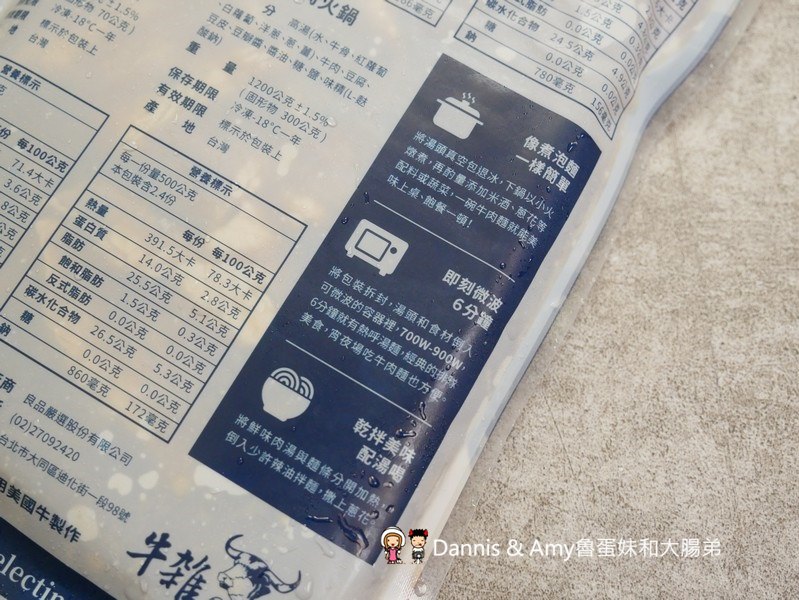 火鍋
高湯(水、牛骨、紅蘿蔔
、白蘿蔔、洋蔥、蔥、薑)、牛肉、豆腐、
豆皮、豆瓣醬、醬油、糖、鹽、味精(L-麩
酸鈉)
重量 1200公克±1.5%
(固形物 300公克)
保存期限 冷凍-18°C一年
有效期限 標示於包裝上
產地 台灣
(固形物 70公克)
冷凍-18°C一年
標示於包裝上
台灣
營養標示
每100公克
71.4大卡
3.6公克
營養標示
每一份量500公克
本包裝含2.4份
每份 每100公克
熱量 391.5大卡 78.3大卡
蛋白質 14.0公克 2.8公克
脂肪 25.5公克 5.1公克
飽和脂肪 1.5公克 0.3公克
反式脂肪 0.0公克 0.0公克
碳水化合物 26.5公克 5.3公克
糖 0.0公克 0.0公克
鈉 860毫克 172毫克
碳水化合物 24.5公克 4.9公克
糖 0.0公克 0.0公克
鈉 780毫克 156毫克
良品嚴選股份有限公司
(02)27092420
台北市大同區迪化街一段98號
用美國牛製作
牛雜
像煮泡麵
一樣簡單
將湯頭真空包退冰,下鍋以小火
燉煮,再酌量添加米酒、蔥花等
配料或蔬菜,一碗牛肉麵就能美
味上桌、飽餐一頓!
即刻微波
6分鐘
將包裝拆封,湯頭和食材倒入
可微波的容器裡,700W-900W,
6分鐘就有熱呼湯麵,經典的排隊
美食,宵夜場吃牛肉麵也方便。
乾拌美味
配湯喝
將鮮味肉湯與麵條分開加熱
倒入少許辣油拌麵,撒上蔥花
Dannis & Amy魯蛋妹和大腸弟